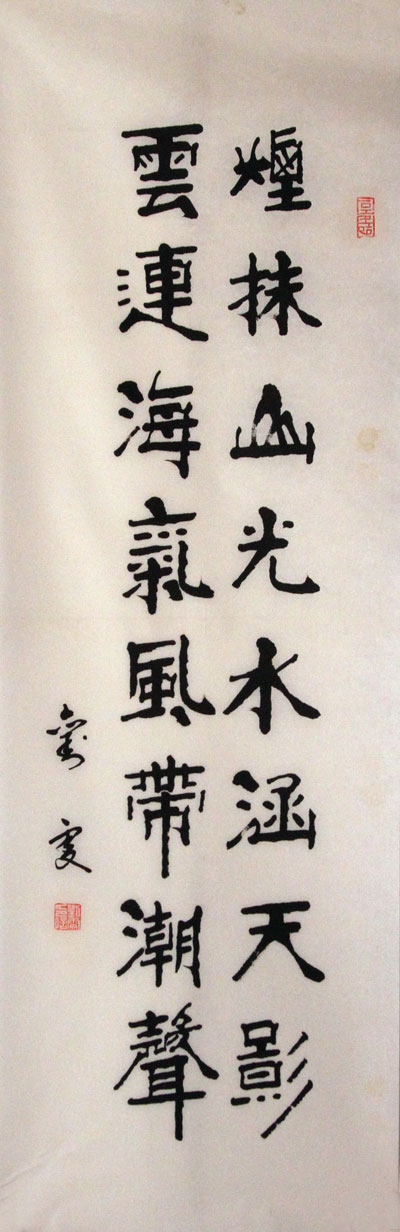 煙抹山光水涵天影
雲連海氣風帶潮聲